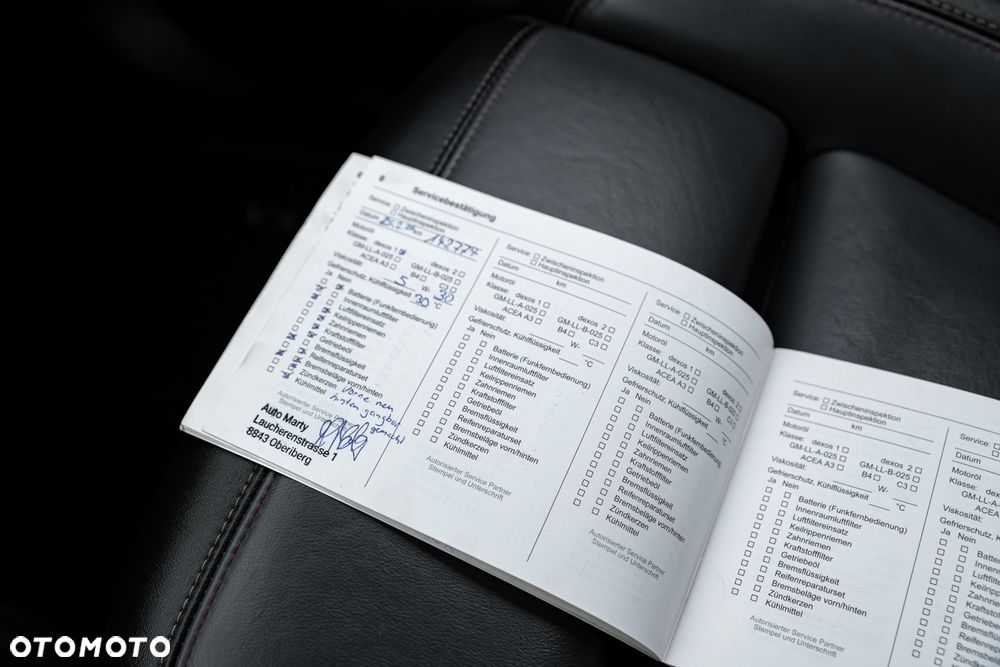 6
Servicebestätigung
Service: Zwischeninspektion
Hauptinspektion
Datum km 192774
Motoröl
Klasse: dexos 1 dexos 2
GM-LL-A-025 GM-LL-B-025
ACEA A3 B4 C3
Viskosität: 5 W- 30
Gefrierschutz, Kühlflüssigkeit 30 °C
Ja Nein
Batterie (Funkfernbedienung)
Innenraumluftfilter
Luftfiltereinsatz
Keilrippenriemen
Zahnriemen
Kraftstofffilter
Getriebeöl
Bremsflüssigkeit
Reifenreparaturset
Bremsbeläge vorn/hinten
Zündkerzen
Kühlmittel
vorne neu
hinten gangbar
gemacht
Autorisierter Service
Auto Marty
Laucherenstrasse 1
8843 Oberiberg
Service: Zwischeninspektion
Hauptinspektion
Datum km
Motoröl
Klasse: dexos 1 dexos 2
GM-LL-A-025 GM-LL-B-025
ACEA A3 B4 C3
Viskosität: W-
Gefrierschutz, Kühlflüssigkeit °C
Ja Nein
Batterie (Funkfernbedienung)
Innenraumluftfilter
Luftfiltereinsatz
Keilrippenriemen
Zahnriemen
Kraftstofffilter
Getriebeöl
Bremsflüssigkeit
Reifenreparaturset
Bremsbeläge vorn/hinten
Zündkerzen
Kühlmittel
Autorisierter Service Partner
Stempel und Unterschrift
Service: Zwischeninspektion
Hauptinspektion
Datum km
Motoröl
Klasse: dexos 1 dexos 2
GM-LL-A-025 GM-LL-B-025
ACEA A3 B4 C3
Viskosität: W-
Gefrierschutz, Kühlflüssigkeit
Ja Nein
Batterie (Funkfernbedienung)
Innenraumluftfilter
Luftfiltereinsatz
Keilrippenriemen
Zahnriemen
Kraftstofffilter
Getriebeöl
Bremsflüssigkeit
Reifenreparaturset
Bremsbeläge vorn/hinten
Zündkerzen
Kühlmittel
Autorisierter Service Partner
Stempel und Unterschrift
Service: Zwischeninspektion
Hauptinspektion
Datum km
Motoröl
Klasse: dexos 1 dexos 2
GM-LL-A-025 GM-LL-B-025
ACEA A3 B4 C3
Viskosität: W-
Gefrierschutz, Kühlflüssigkeit °C
Ja Nein
Batterie (Funkfernbedienung)
Innenraumluftfilter
Luftfiltereinsatz
Keilrippenriemen
Zahnriemen
Kraftstofffilter
Getriebeöl
Bremsflüssigkeit
Reifenreparaturset
Bremsbeläge vorn/hinten
Zündkerzen
Kühlmittel
Autorisierter Service Partner
Stempel und Unterschrift
Service:
Datum
Motoröl
Klasse:
GM-LL-A
ACEA
Viskosität:
Gefrierschutz, K
Ja Nein
OTOMOTO